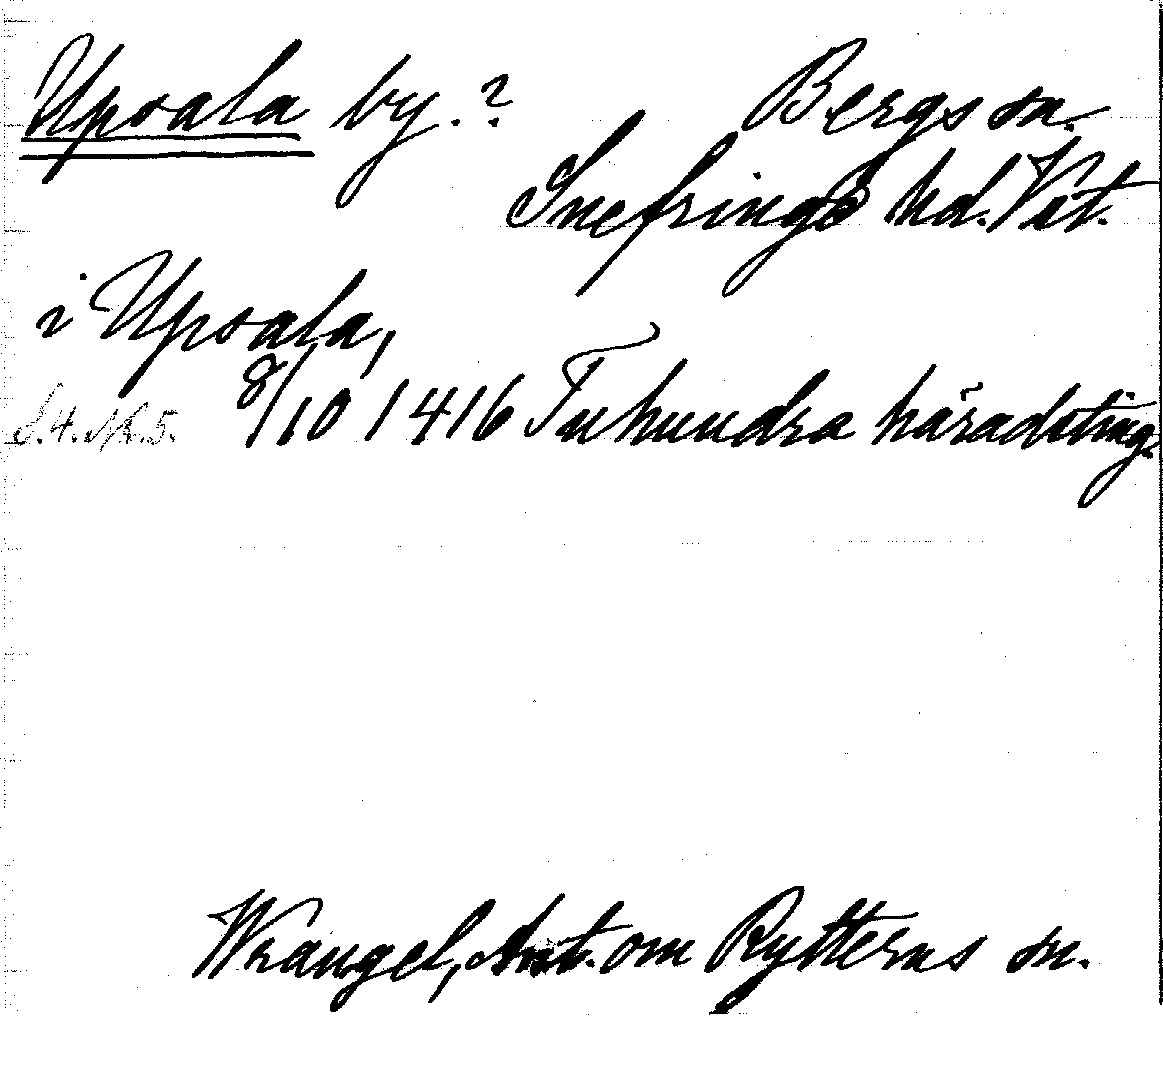 Upsala by.? Bergs sn.
Snefringe hd. Vst.
i Upsala,
S. 4. N. 5. 8/10 1416 Tuhundra häradsting.
Wrangel, Ant. om Rytterns sn.